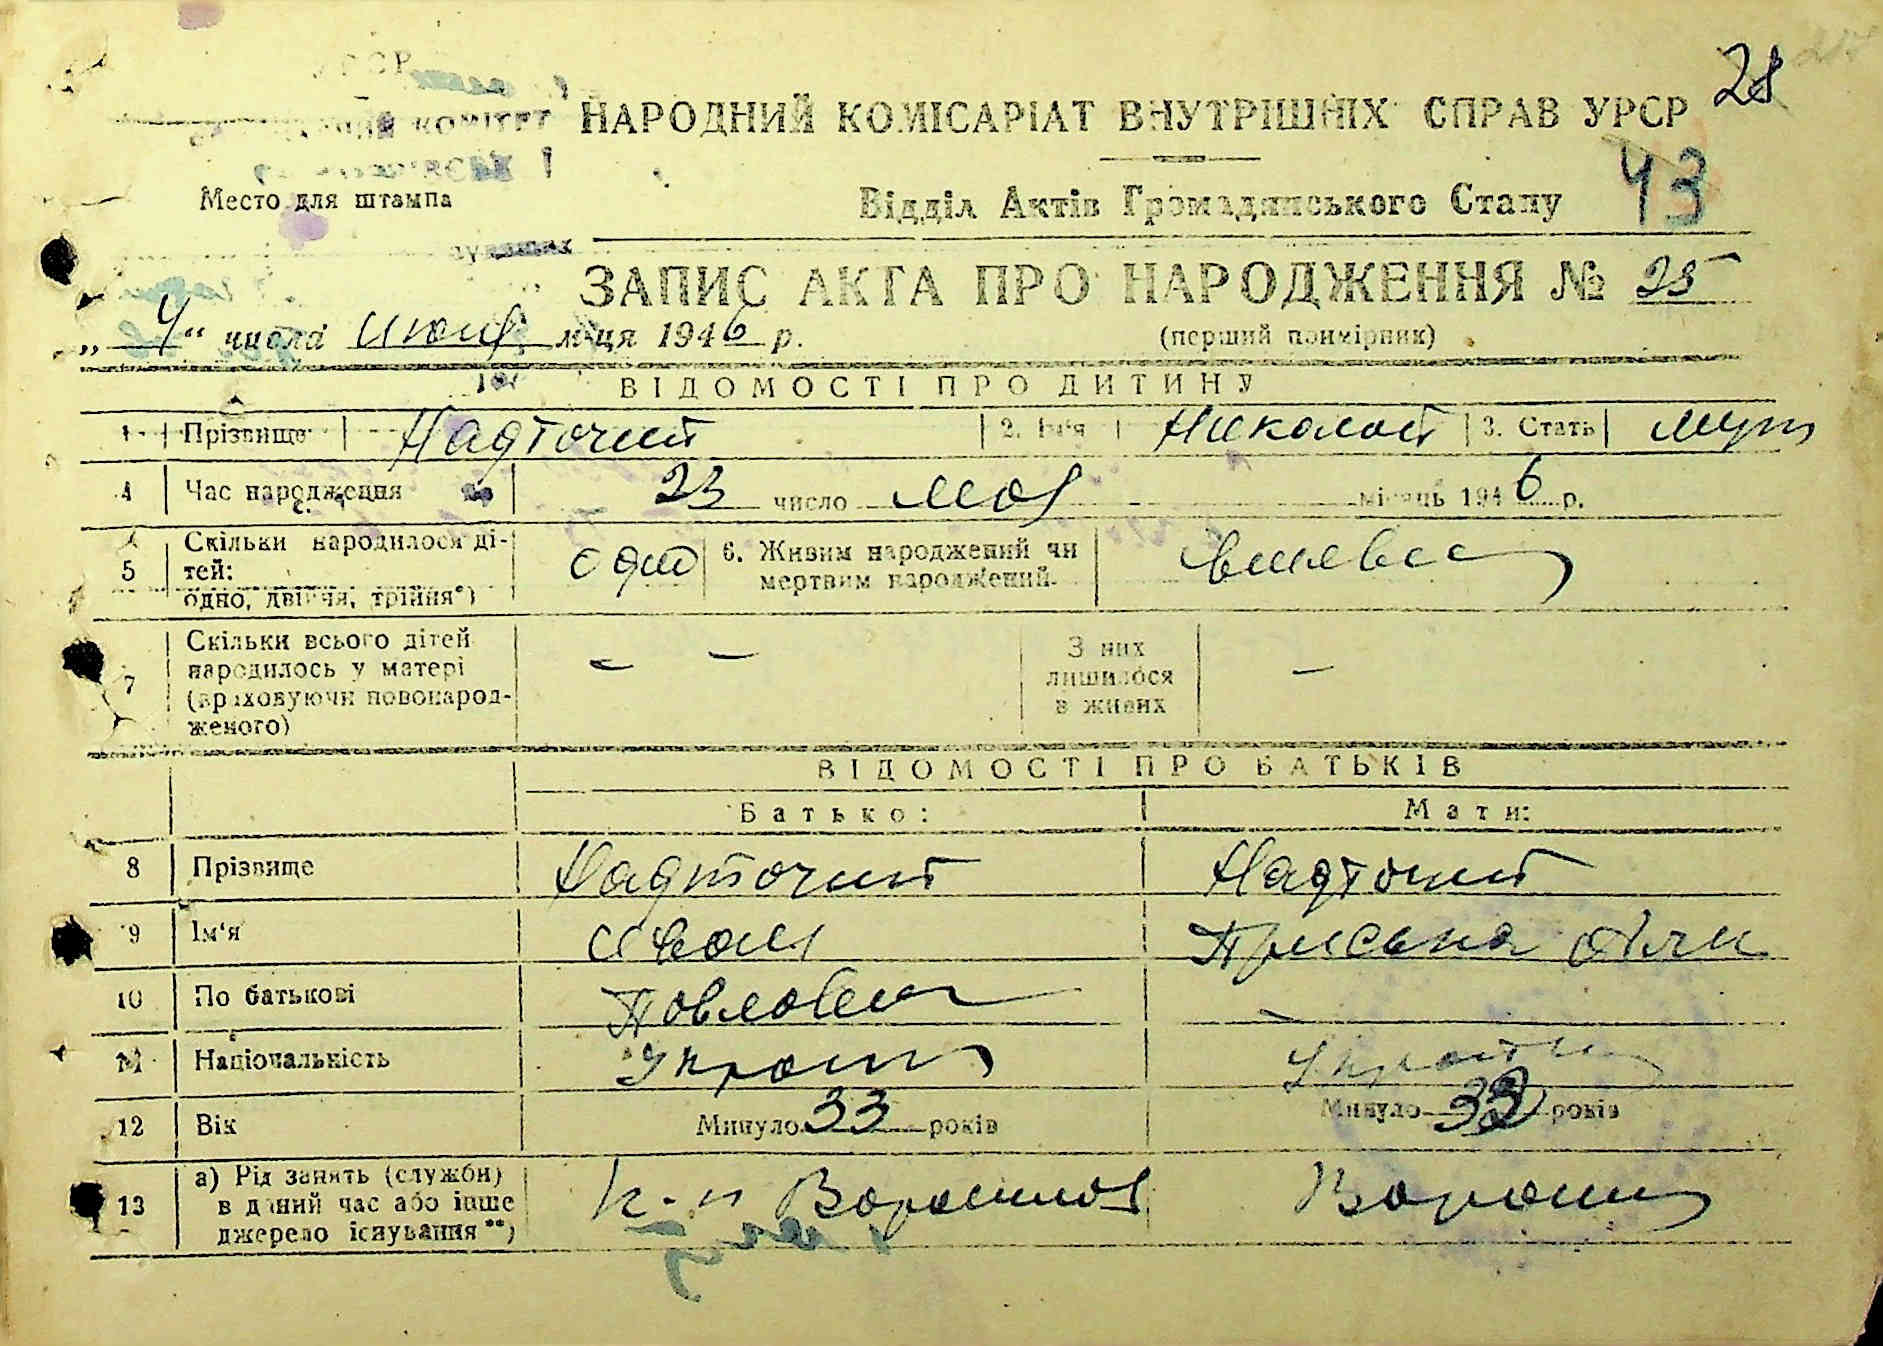 28
КОМІТЕТ
НАРОДНИЙ КОМІСАРІАТ ВНУТРІШНІХ СПРАВ УРСР
43
Место для штампа
Відділ Актів Громадянського Стану
ЗАПИС АКТА ПРО НАРОДЖЕННЯ № 25
„ 4 “ числа июня м-ця 1946 р. (перший примірник)
ВІДОМОСТІ ПРО ДИТИНУ
1 Прізвище Надточий 2. Ім'я Николай 3. Стать муж
4 Час народження 23 число мая місяць 1946 р.
5 Скільки народилося ді-
тей:
одно, двійня, трійня*) 6. Живим народжений чи
мертвим народжений
7 Скільки всього дітей
народилось у матері
(враховуючи новонарод-
женого) — — З них
лишилося
в живих —
ВІДОМОСТІ ПРО БАТЬКІВ
Батько: Мати:
8 Прізвище Надточий Надточий
9 Ім'я Иван
10 По батькові Павлович —
11 Національність
12 Вік Минуло 33 років Минуло років
13 а) Рід занять (служби)
в даний час або інше
джерело існування**) к-п